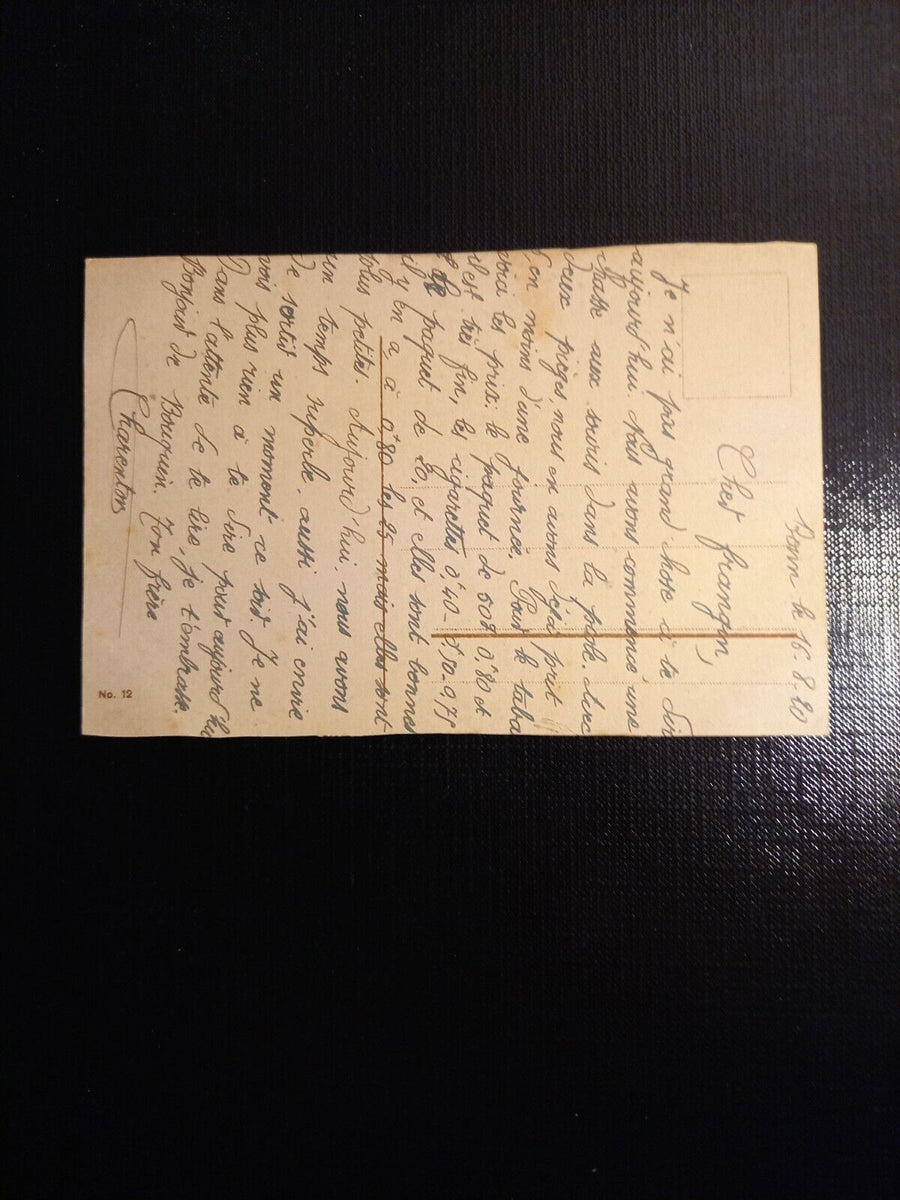 Bonn le 16.8.20
Cher frangin,
Je n'ai pas grand chose à te dire
aujourd'hui. Nous avons commencé une
chasse aux souris dans la piaule. Avec
deux pièges nous en avons déjà prit
en moins d'une journée. Pour le tabac
voici les prix: le paquet de 50 g 0,80 et
il est très fin, les cigarettes 0,40 - 0,70 - 0,75
le paquet de 20, et elles sont bonnes
il y en a à 0,80 les 25 mais elles sont
plus petites. Aujourd'hui nous avons
un temps superbe, aussi j'ai envie
de sortir un moment ce soir. Je ne
vois plus rien à te dire pour aujourd'hui
Dans l'attente de te lire, je t'embrasse.
Bonjour de Bourguin. Ton frère
Charenton
No. 12